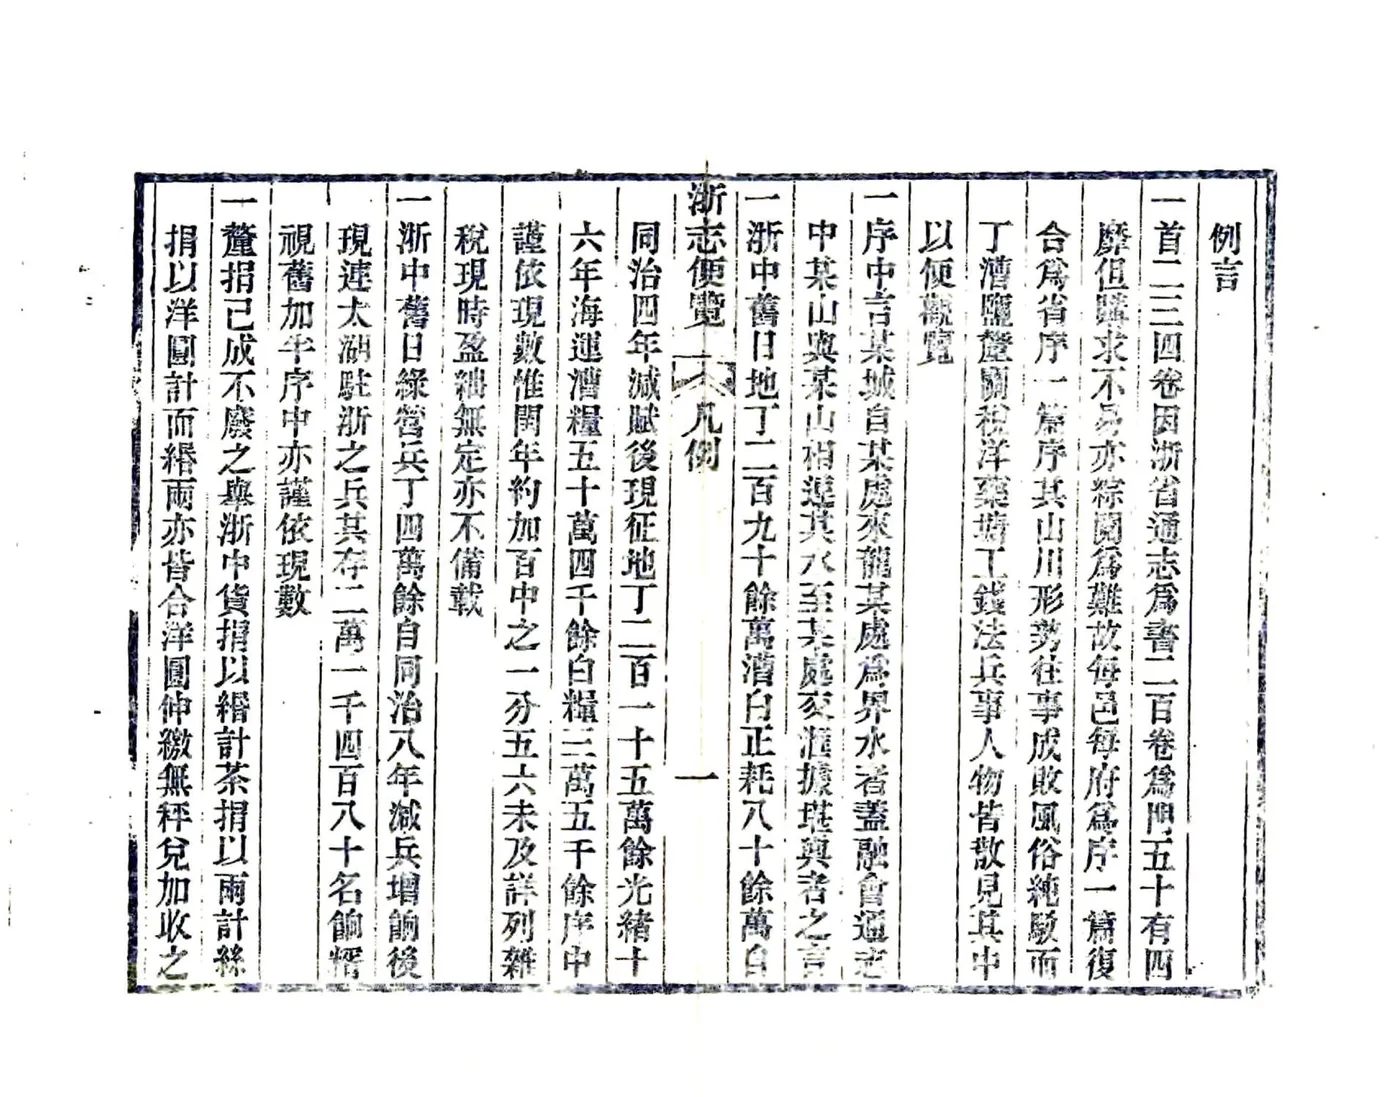 例言
一首二三四卷因浙省通志爲書二百卷爲門五十有四
靡但購求不易亦綜閱爲難故每邑每府爲序一篇復
合爲省序一篇序其山川形势往事成敗風俗純駁而
丁漕鹽釐關稅洋藥塘工錢法兵事人物皆散見其中
以便觀覽
一序中言某城自某處來龍某處爲界水者蓋融會通志
中某山與某山相連某水至某處交滙據堪輿者之言
一浙中舊日地丁二百九十餘萬漕白正耗八十餘萬自
浙志便覽 凡例 一
同治四年減賦後現征地丁二百一十五萬餘光緒十
六年海運漕糧五十萬四千餘白糧三萬五千餘序中
謹依現數惟閏年約加百中之一分五六未及詳列雜
稅現時盈絀無定亦不備載
一浙中舊日綠營兵丁四萬餘自同治八年減兵增餉後
現連太湖駐浙之兵其存二萬一千四百八十名餉糈
視舊加半序中亦謹依現數
一釐捐己成不廢之舉浙中貨捐以緡計茶捐以兩計絲
捐以洋圓計而緡兩亦皆合洋圓伸繳無秤兌加收之